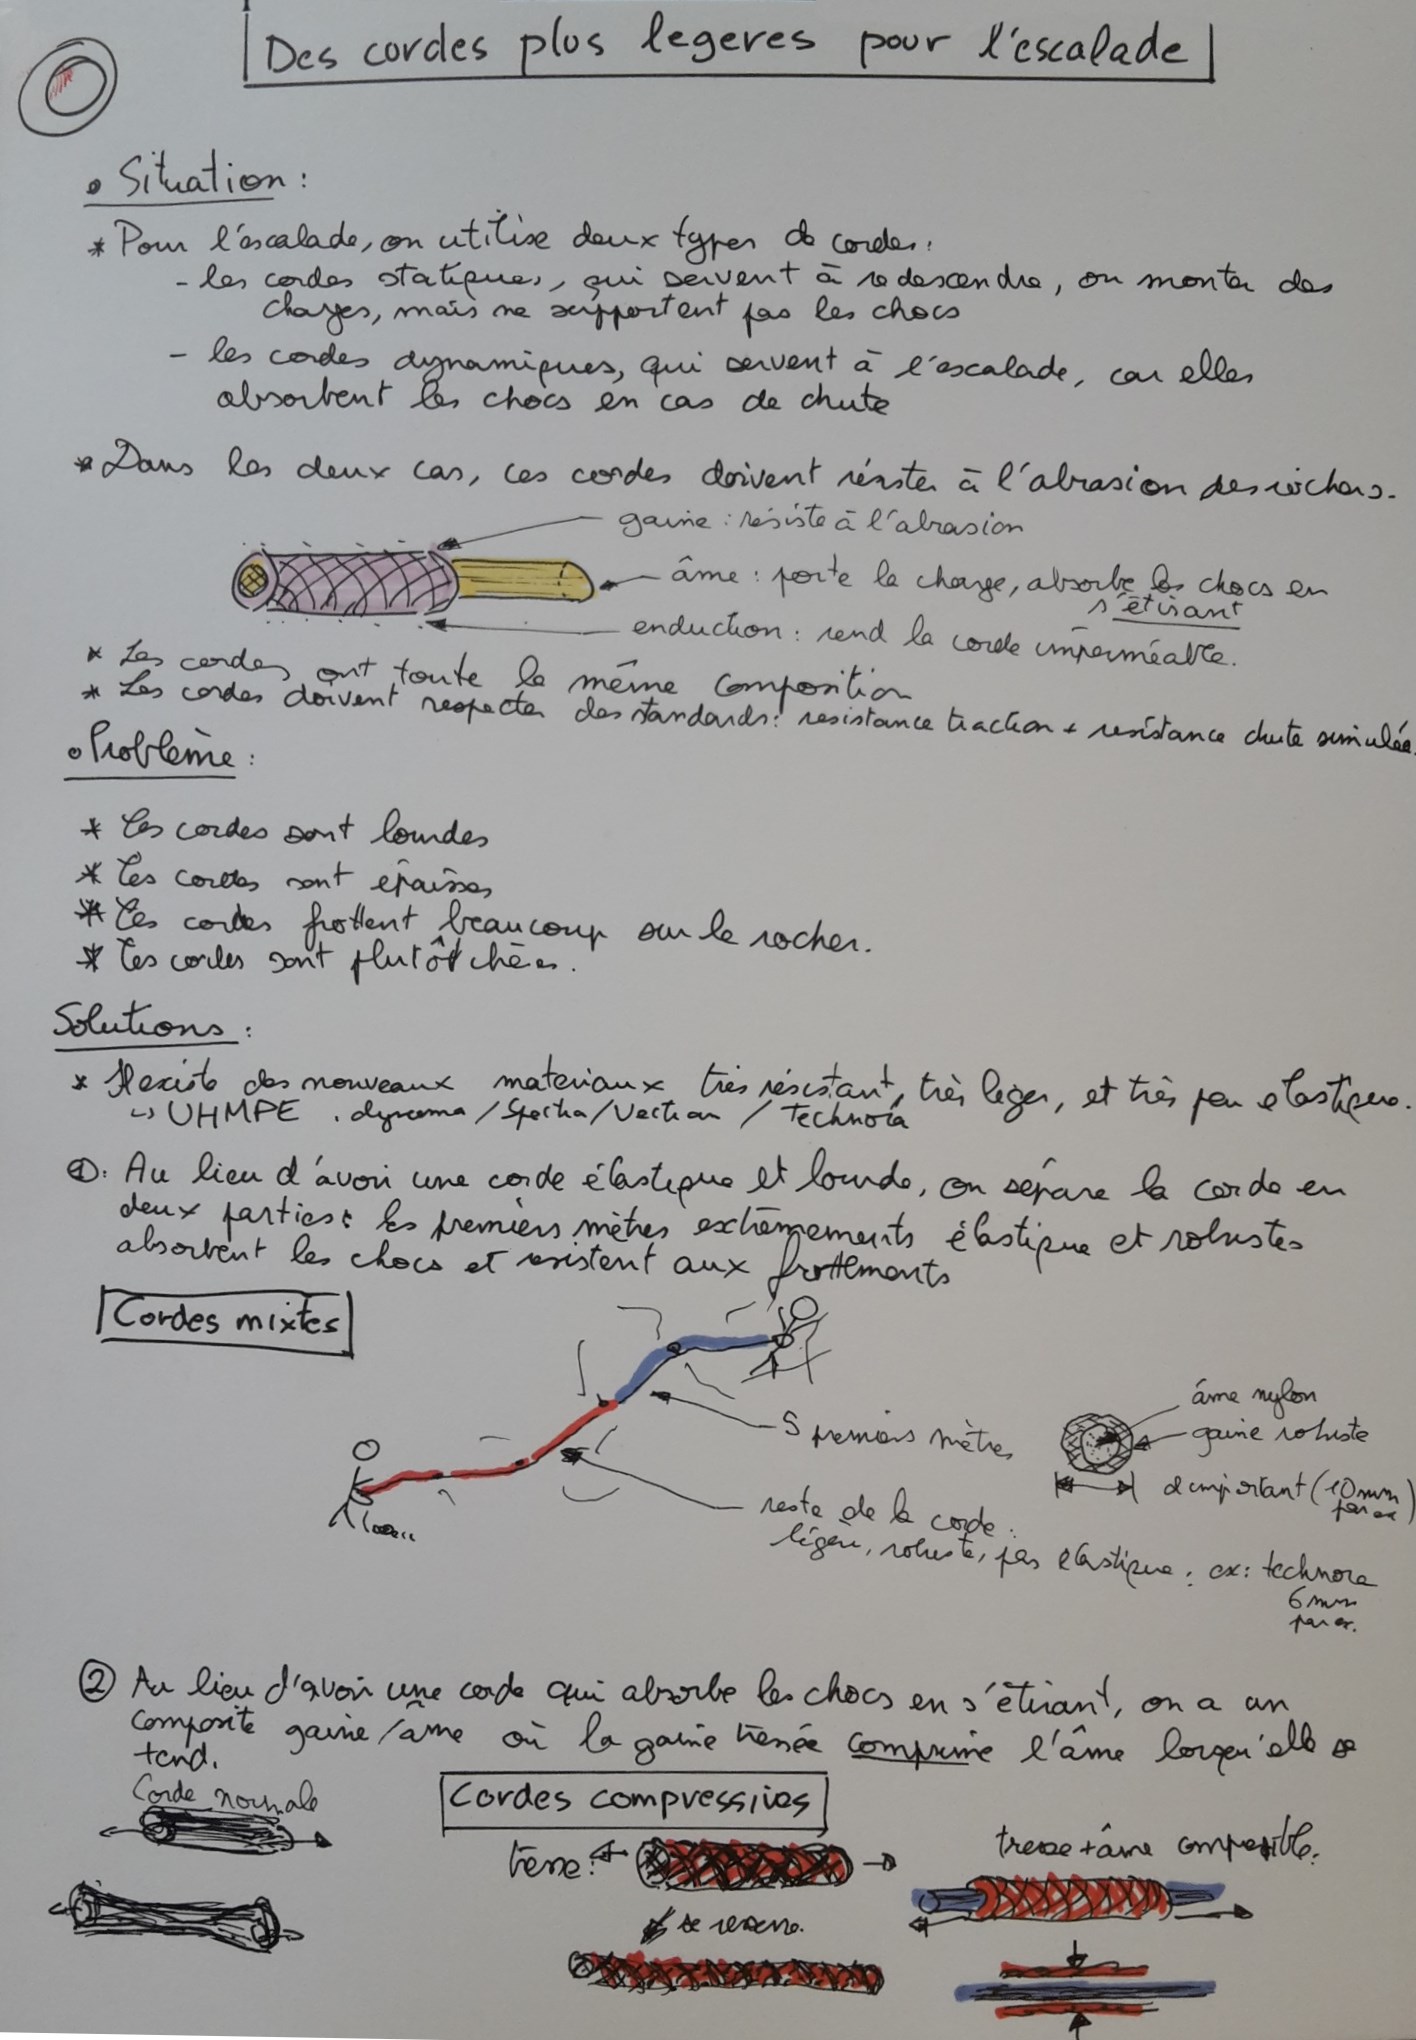 Des cordes plus legeres pour l'escalade
• Situation :
* Pour l'escalade, on utilise deux types de cordes :
- les cordes statiques, qui servent à redescendre, ou monter des
charges, mais ne supportent pas les chocs
- les cordes dynamiques, qui servent à l'escalade, car elles
absorbent les chocs en cas de chute
* Dans les deux cas, ces cordes doivent résister à l'abrasion des rochers.
gaine : résiste à l'abrasion
âme : porte la charge, absorbe les chocs en
s'étirant
enduction : rend la corde imperméable.
* Les cordes ont toute la même composition
* Les cordes doivent respecter des standards : resistance traction + resistance chute simulée.
• Problème :
* Les cordes sont lourdes
* Les cordes sont épaisses
* Les cordes frottent beaucoup sur le rocher.
* Les cordes sont plutôt chères.
Solutions :
* Il existe des nouveaux materiaux très résistant, très leger, et très peu elastique.
↳ UHMPE . dyneema / Spectra / Vectran / Technora
①: Au lieu d'avoir une corde élastique et lourde, on sépare la corde en
deux parties : les premiers mètres extrêmements élastique et robustes
absorbent les chocs et resistent aux frottements
Cordes mixtes
5 premiers mètres
âme nylon
gaine robuste
d important (10mm
par ex)
reste de la corde :
légère, robuste, pas elastique : ex: technora
6mm
par ex.
② Au lieu d'avoir une corde qui absorbe les chocs en s'étirant, on a un
composite gaine/âme où la gaine tressée comprime l'âme lorsqu'elle se
tend.
Corde normale
Cordes compressives
tresse :
tresse + âme compressible :
se resserre.